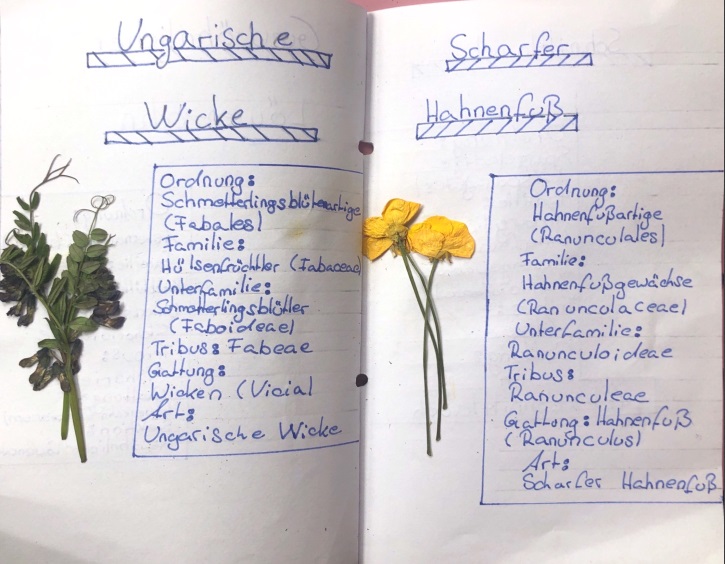 Ungarische
Wicke
Ordnung:
Schmetterlingsblütenartige
(Fabales)
Familie:
Hülsenfrüchtler (Fabaceae)
Unterfamilie:
Schmetterlingsblütler
(Faboideae)
Tribus: Fabeae
Gattung:
Wicken (Vicia)
Art:
Ungarische Wicke
Scharfer
Hahnenfuß
Ordnung:
Hahnenfußartige
(Ranunculales)
Familie:
Hahnenfußgewächse
(Ranuncolaceae)
Unterfamilie:
Ranunculoideae
Tribus:
Ranunculeae
Gattung: Hahnenfuß
(Ranunculus)
Art:
Scharfer Hahnenfuß